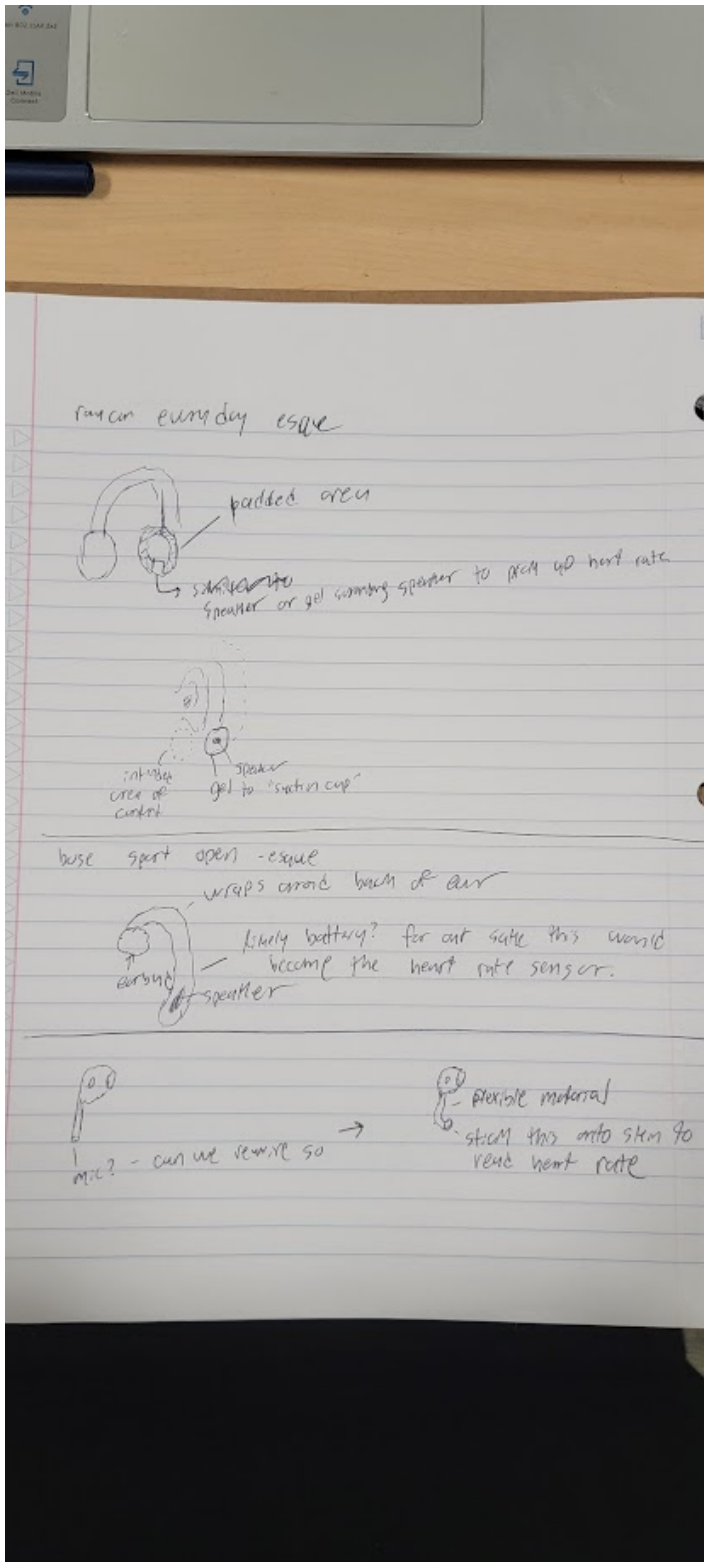 Dell Mobile
Connect
raycon everyday esque
padded area
speaker or gel surrounding speaker to pick up heart rate
intended
area of
contact
speaker
gel to "suction cup"
bose sport open -esque
wraps around back of ear
likely battery? for our sake this would
become the heart rate sensor.
earbud
speaker
flexible material
mic? - can we rewire so →
stick this onto skin to
read heart rate